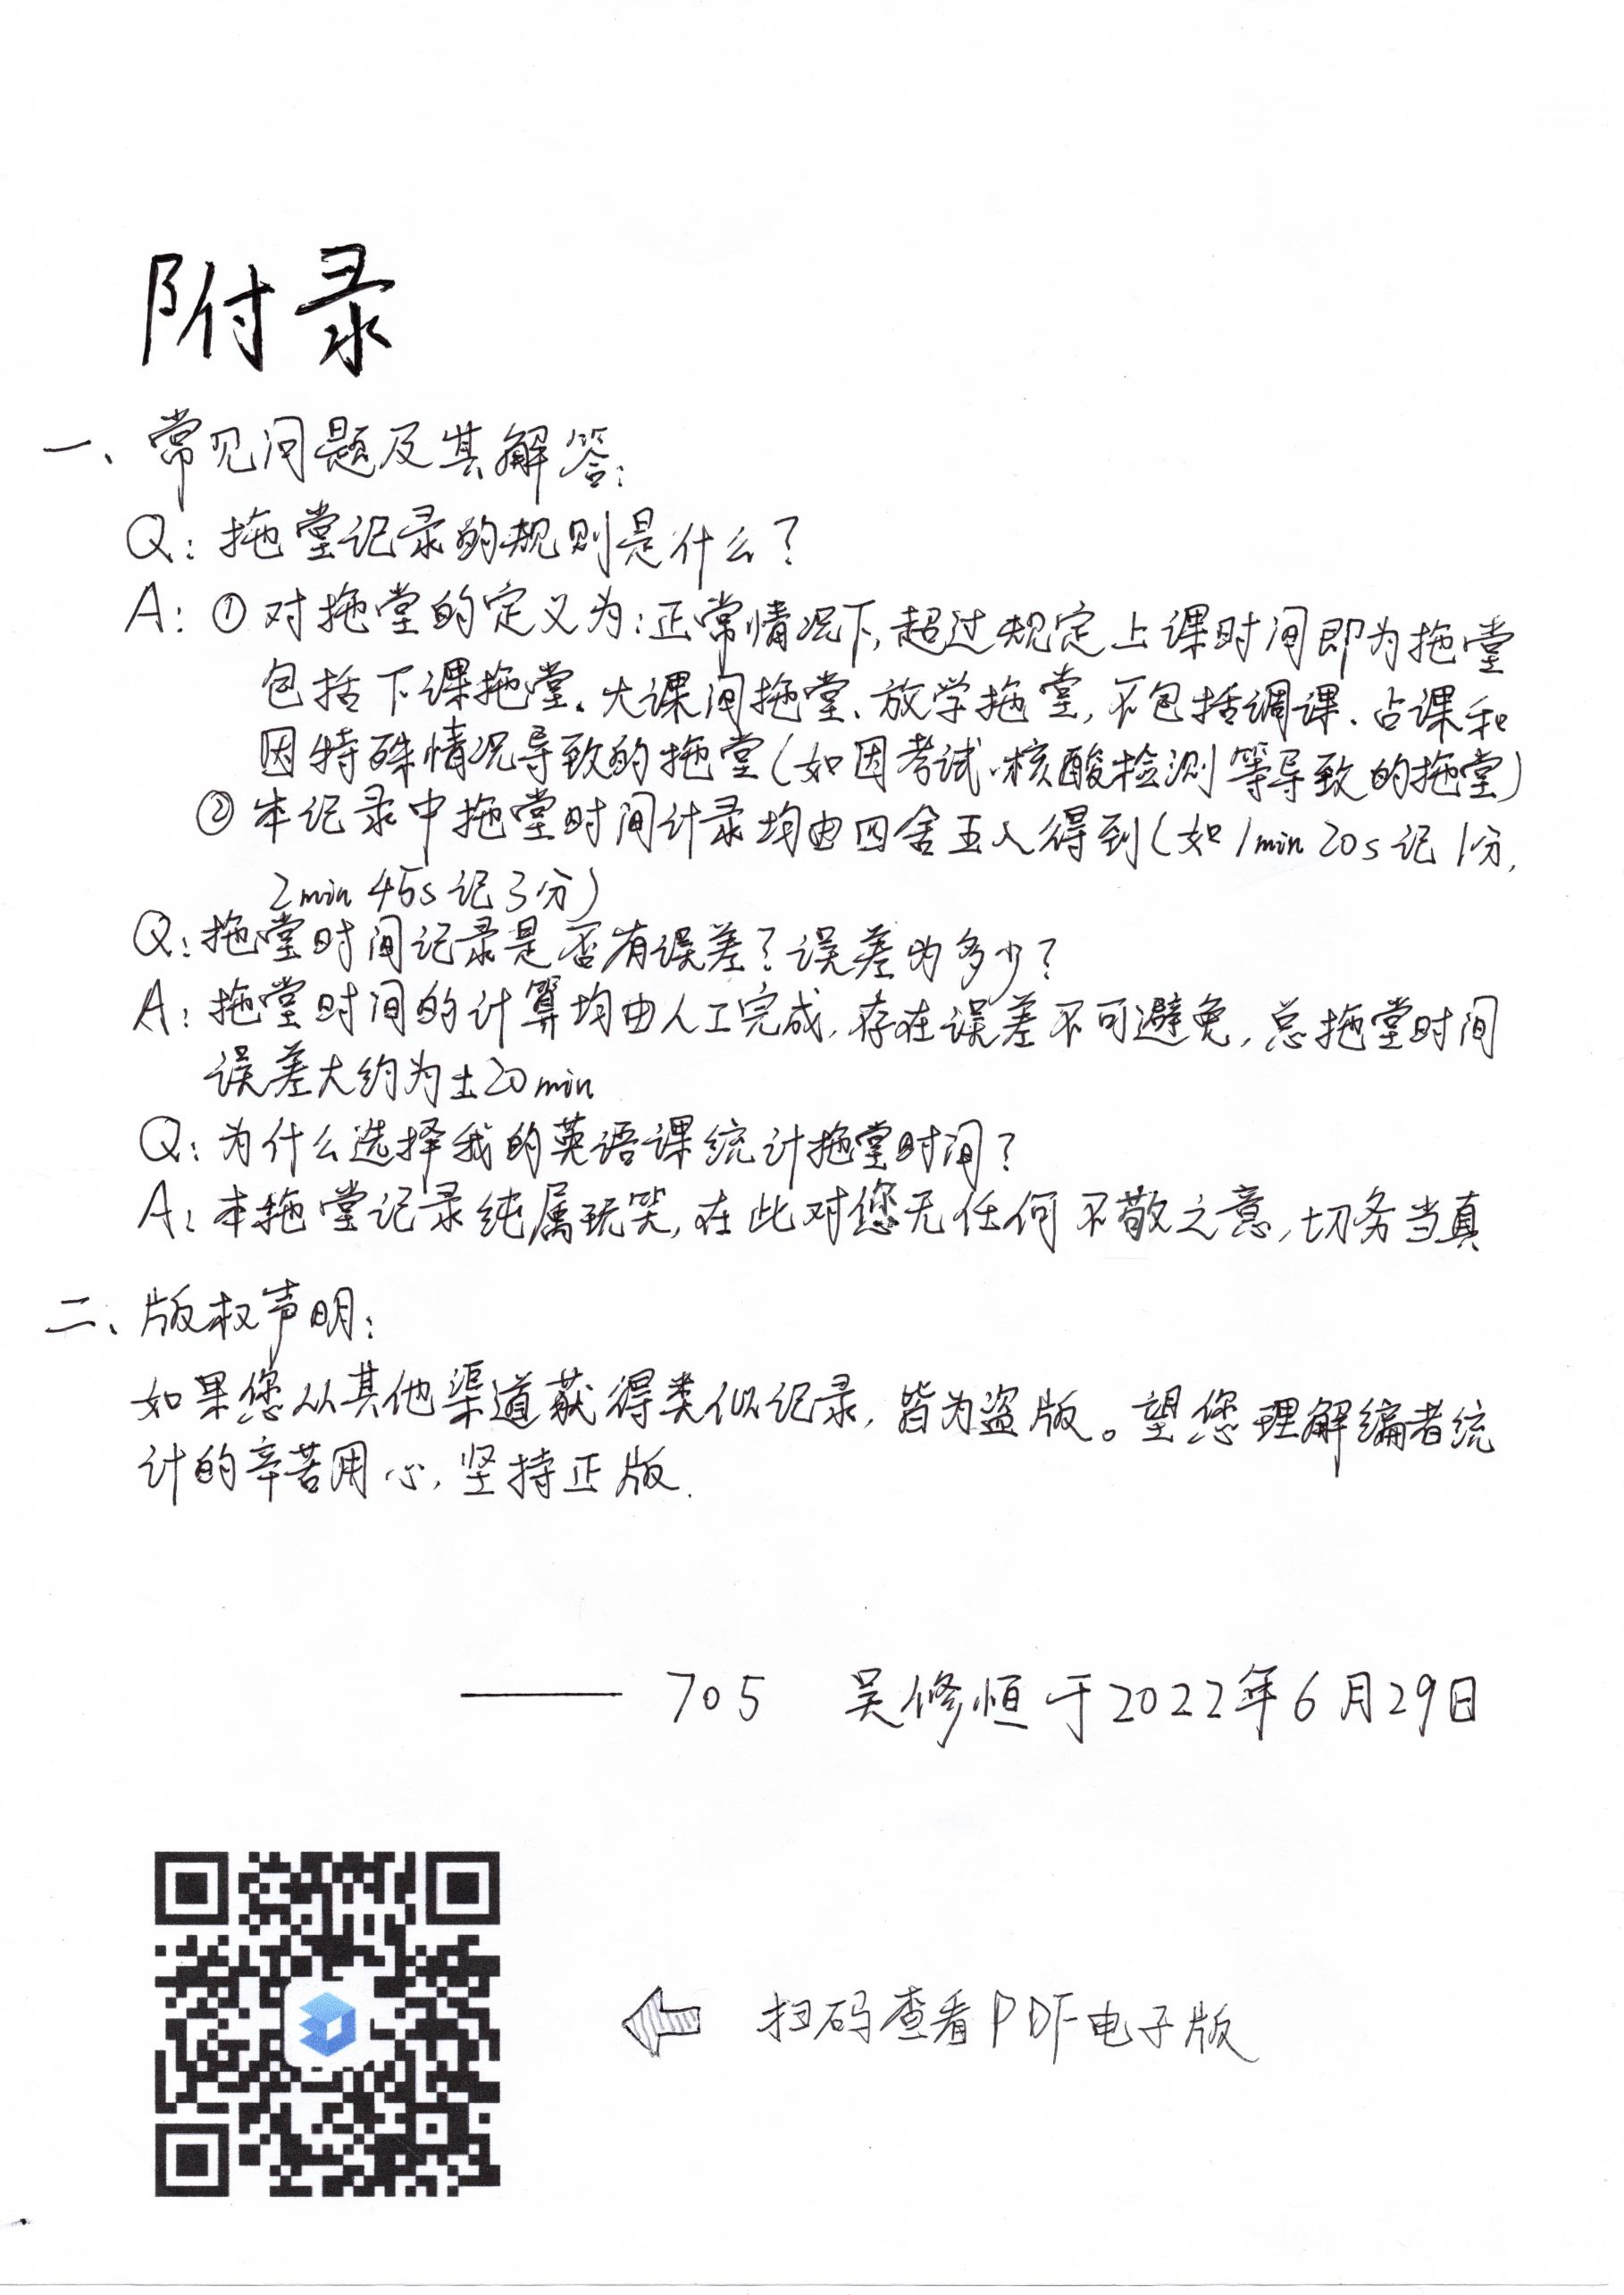 附录
一、常见问题及其解答:
Q:拖堂记录的规则是什么?
A:①对拖堂的定义为:正常情况下,超过规定上课时间即为拖堂
包括下课拖堂、大课间拖堂、放学拖堂,不包括调课、占课和
因特殊情况导致的拖堂(如因考试、核酸检测等导致的拖堂)
②本记录中拖堂时间计录均由四舍五入得到(如1min 20s记1分,
2min 45s记3分)
Q:拖堂时间记录是否有误差?误差为多少?
A:拖堂时间的计算均由人工完成,存在误差不可避免,总拖堂时间
误差大约为±20min
Q:为什么选择我的英语课统计拖堂时间?
A:本拖堂记录纯属玩笑,在此对您无任何不敬之意,切务当真
二、版权声明:
如果您从其他渠道获得类似记录,皆为盗版。望您理解编者统
计的辛苦用心,坚持正版.
—— 705 吴修恒于2022年6月29日
扫码查看PDF电子版